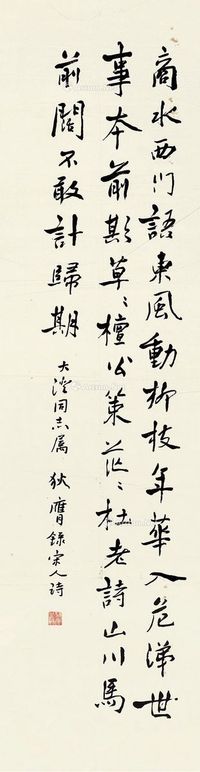 商水西門語東風動柳枝年華入危涕世
事本前期草々檀公策茫々杜老詩山川馬
前闊不敢計歸期
大澄同志屬 狄膺錄宋人詩